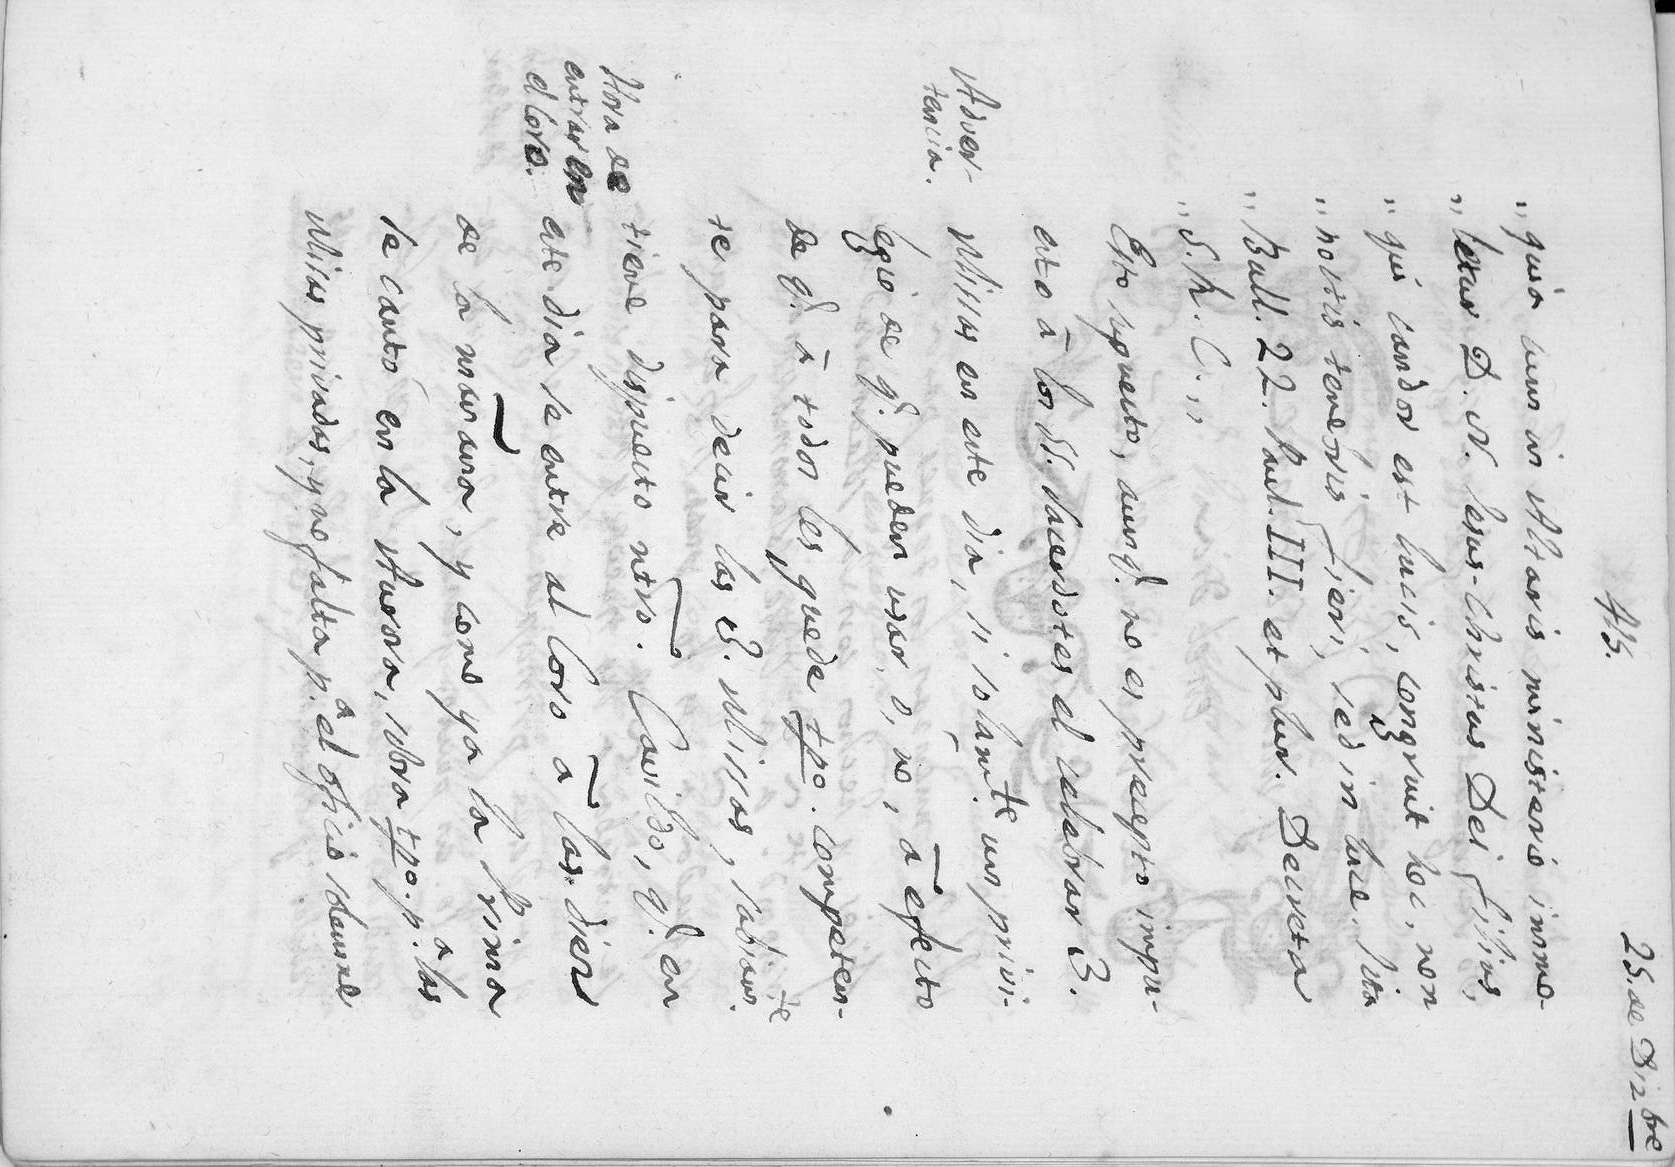 413.
25. de Dizbre
„ quia cum in Altaris ministerio immo-
„ letur D. N. Iesus-Christus Dei filius,
„ qui candor est lucis, congruit hoc, non
„ noctis tenebris fieri, sed in luce. Iuta
„ Bull. 22. Paul. III. et plur. Decreta
„ S. R. C. „
Esto supuesto, aunq. no es precepto impu-
esto à los SS. Sacerdotes el celebrar 3.
Adver-
tencia.
Missas en este dia, si solamte. un privi-
legio de q. pueden usar, o, no, à efecto
de q. à todos les quede tpo. competen-
te para decir las 3. Missas, sabiamte.
Hora de
entrar en
el Coro.
tiene dispuesto ntro. Cavildo, q. en
este dia se entre al Coro à las diez
de la mañana, y como ya la Prima
se cantó en la Aurora, sobra tpo. pa. las
Missas privadas, y ne falta pa. el oficio solemne